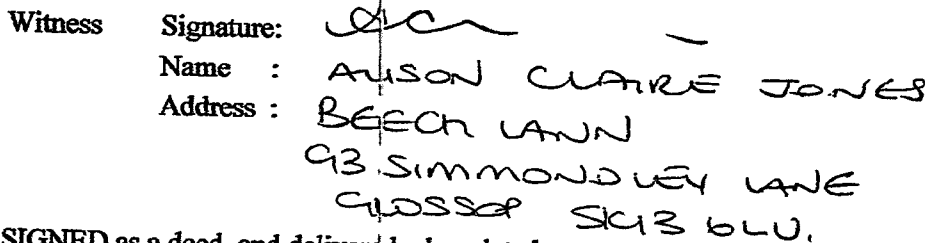 Witness Signature:
Name : ALISON CLAIRE JONES
Address : BEECH LAWN
93 SIMMONDLEY LANE
GLOSSOP SK13 6LU.
SIGNED as a deed, and delivered